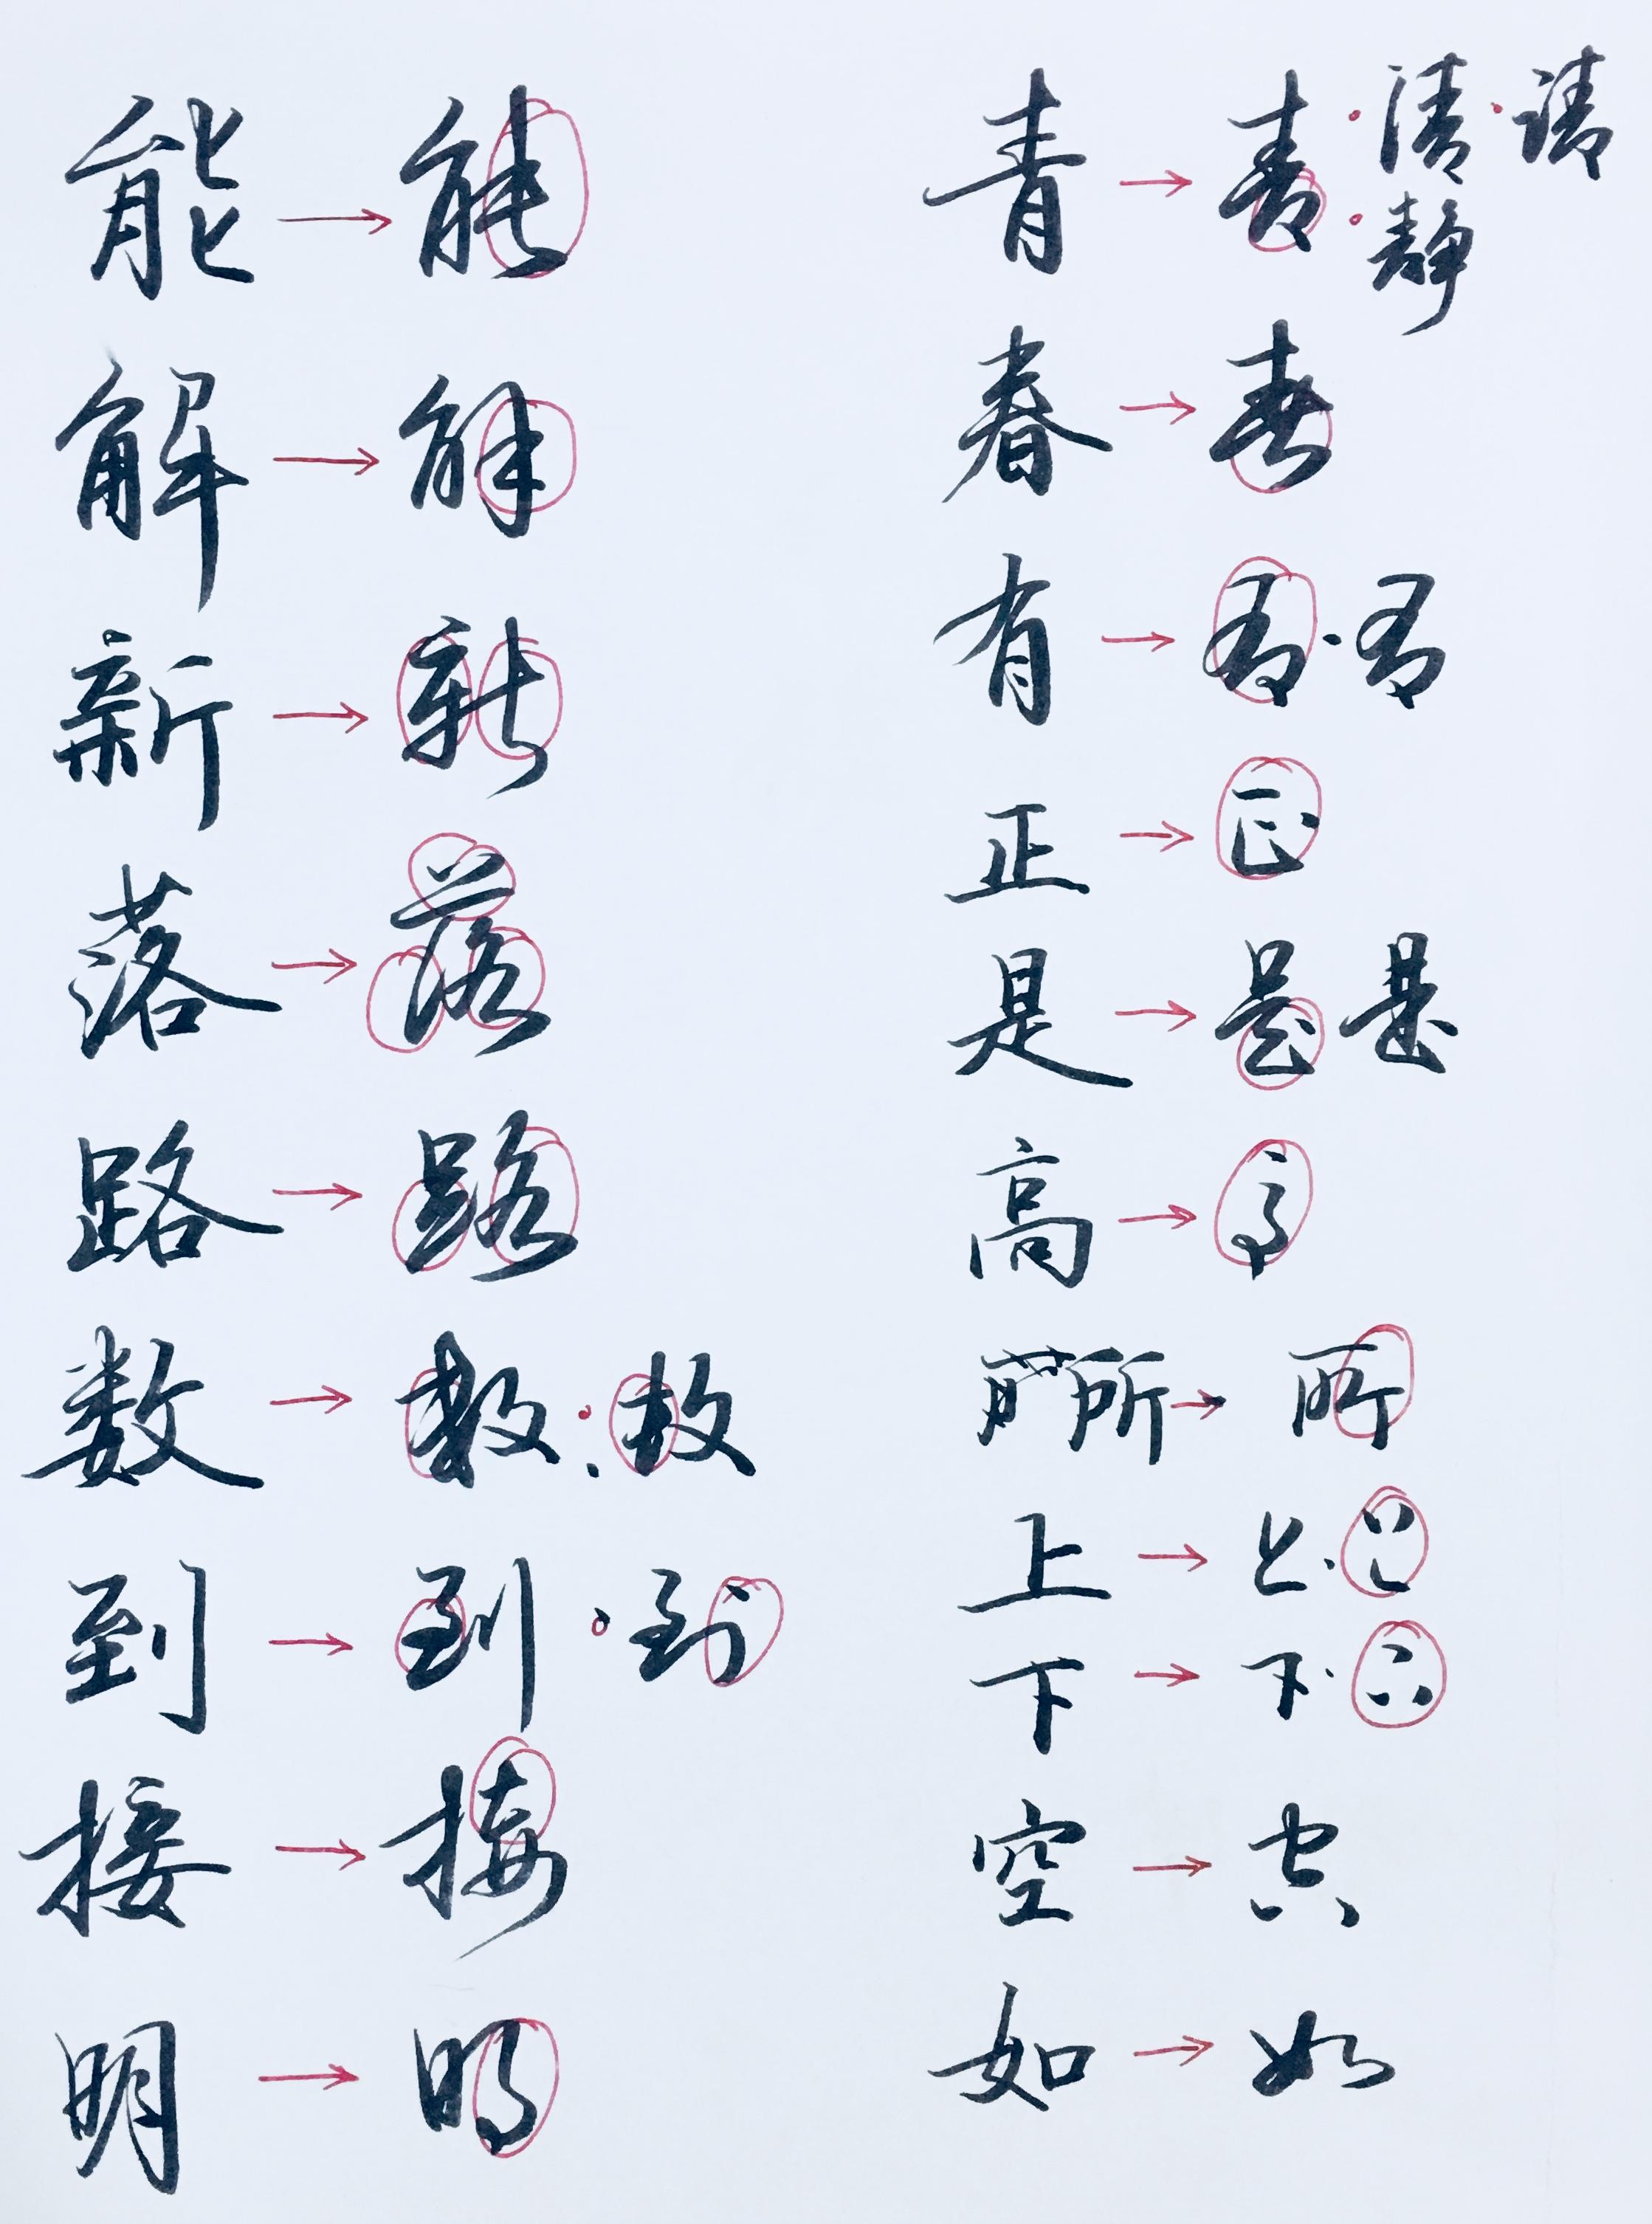 能 → 能
解 → 解
新 → 新
落 → 落
路 → 路
数 → 数 · 数
到 → 到 · 到
接 → 接
明 → 明
青 → 青 · 清 · 请
· 静
春 → 春
有 → 有 · 有
正 → 正
是 → 是 是
高 → 高
所 → 所
上 → 上 · 上
下 → 下 · 下
空 → 空
如 → 如